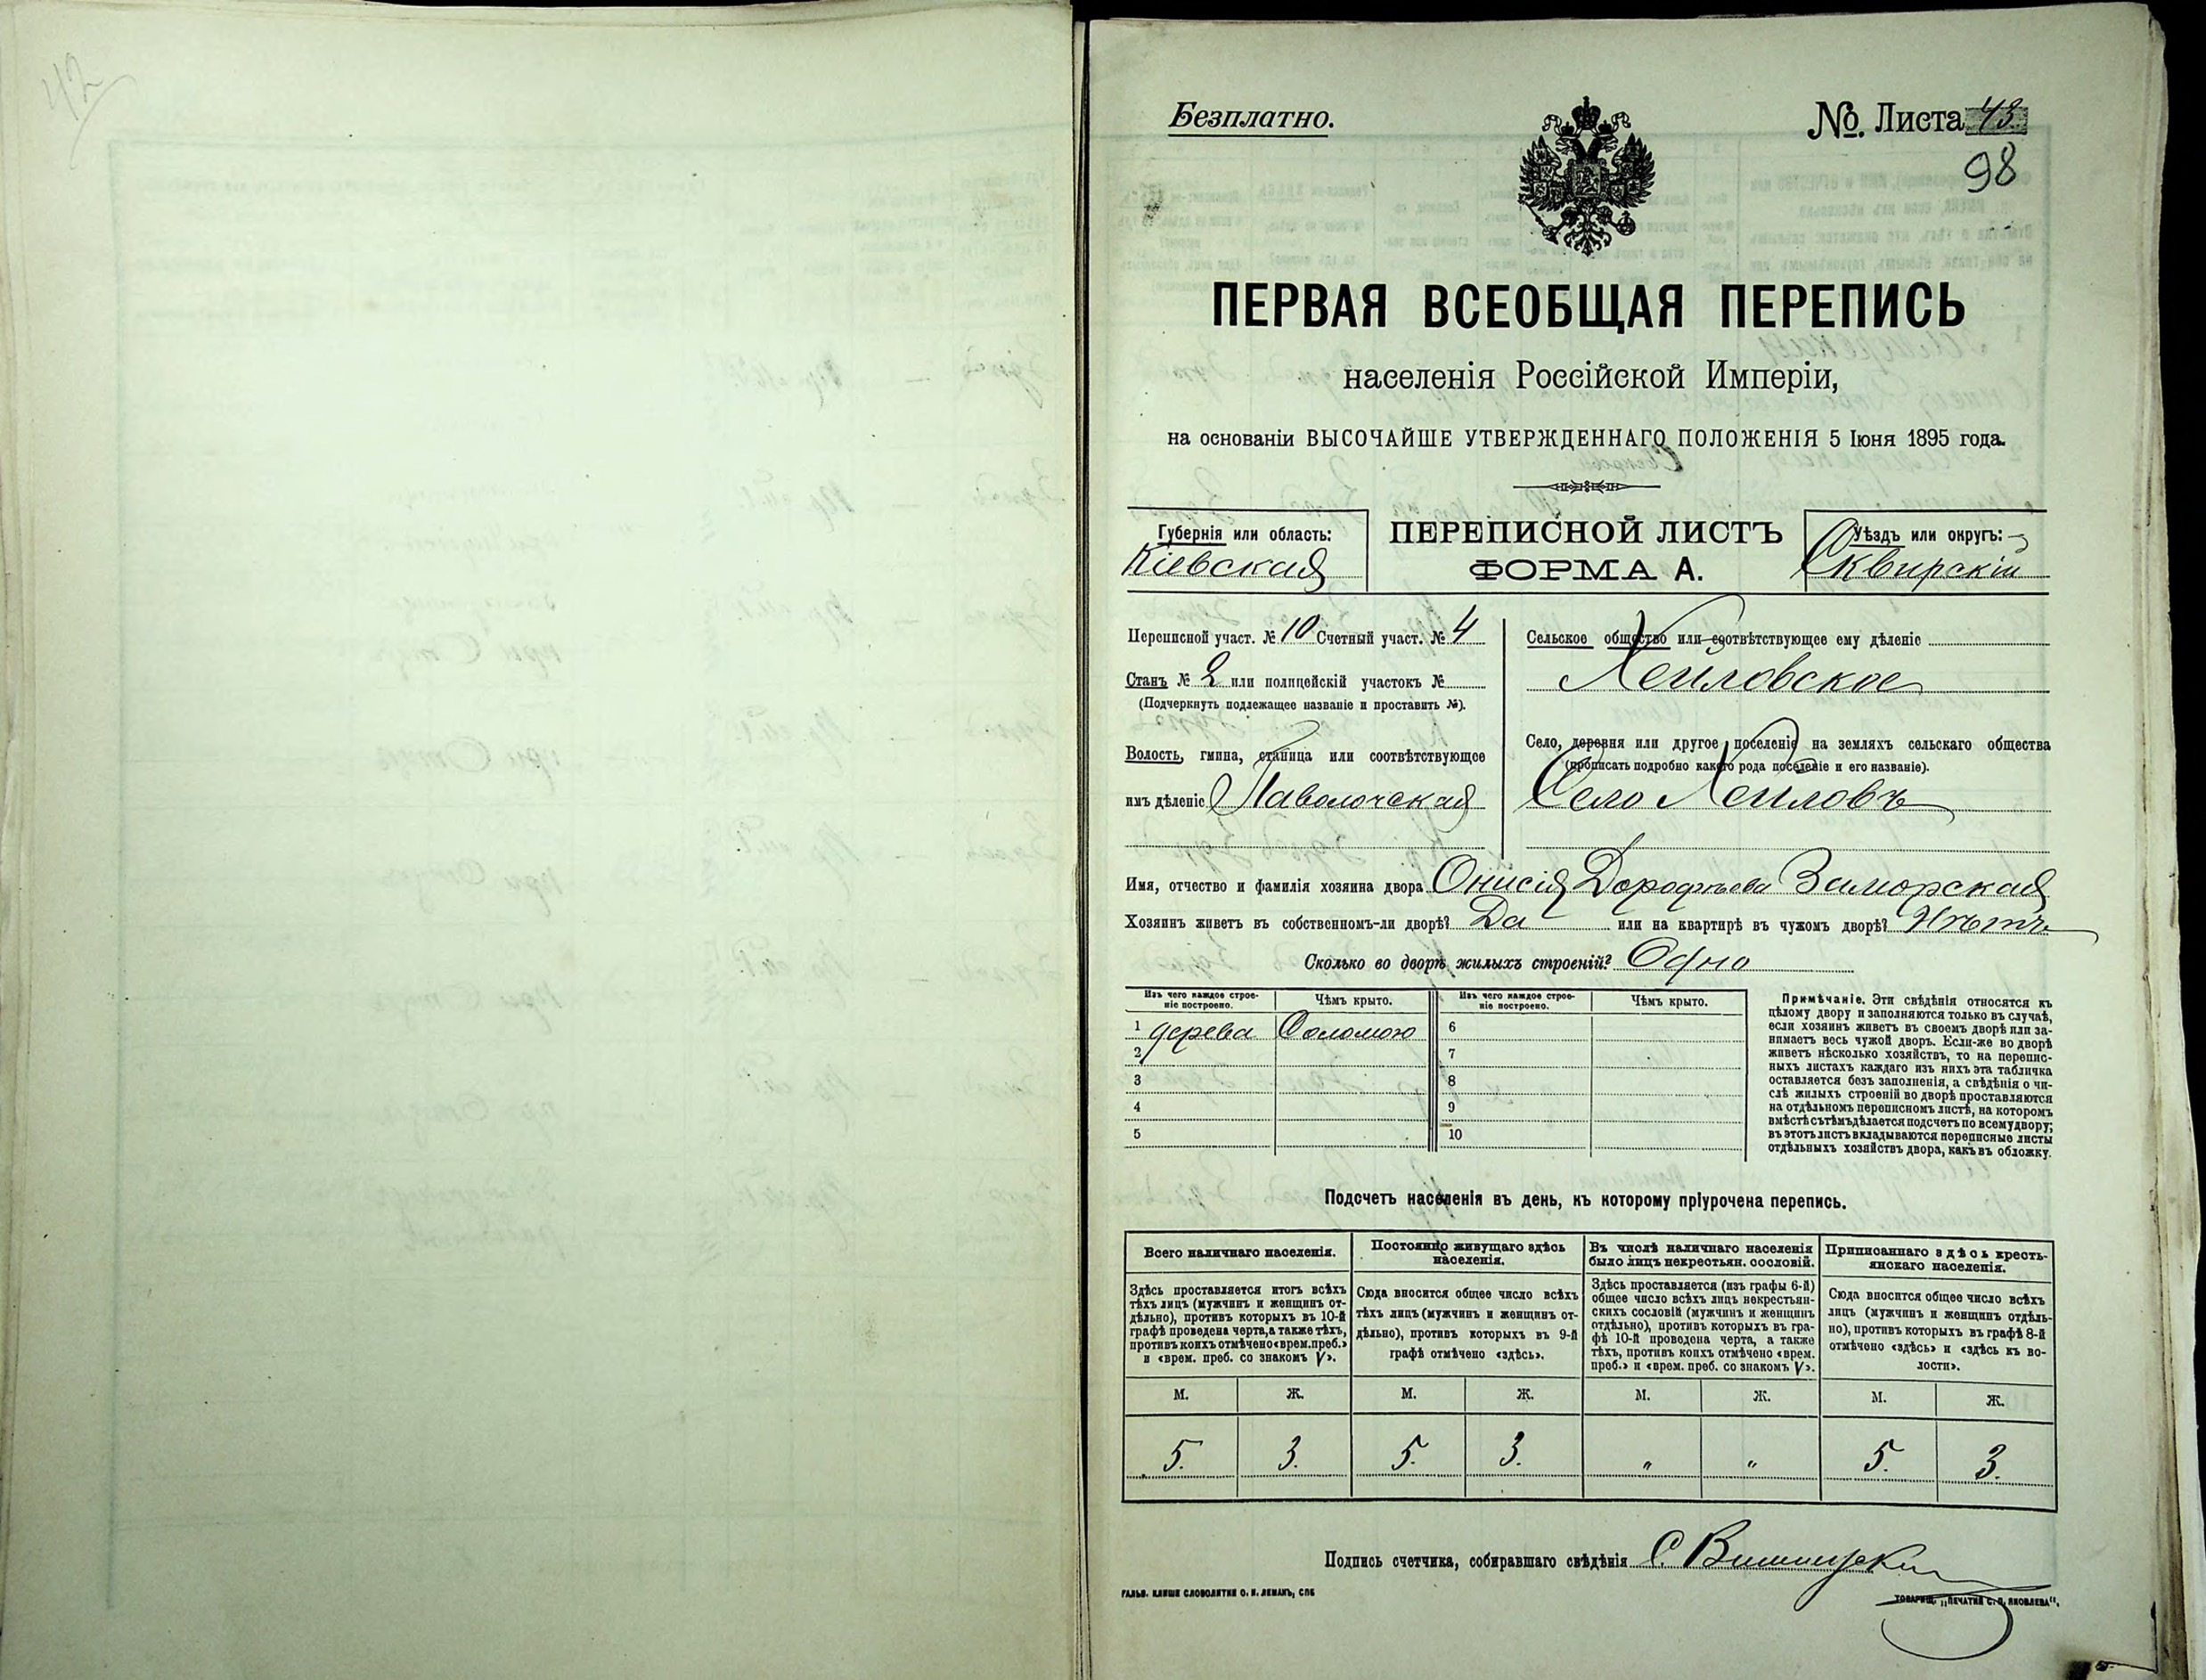 42
Безплатно.
№. Листа 43.
98
ПЕРВАЯ ВСЕОБЩАЯ ПЕРЕПИСЬ
населенія Россійской Имперіи,
на основаніи ВЫСОЧАЙШЕ УТВЕРЖДЕННАГО ПОЛОЖЕНІЯ 5 Іюня 1895 года.
Губернія или область:
Кіевская
ПЕРЕПИСНОЙ ЛИСТЪ
ФОРМА А.
Уѣздъ или округъ:
Сквирскій
Переписной участ. № 10 Счетный участ. № 4
Станъ № 2 или полицейскій участокъ №
(Подчеркнуть подлежащее названіе и проставить №).
Волость, гмина, станица или соотвѣтствующее
имъ дѣленіе Паволочская
Сельское общество или соотвѣтствующее ему дѣленіе
Хейловское
Село, деревня или другое поселеніе на земляхъ сельскаго общества
(прописать подробно какого рода поселеніе и его названіе).
Село Хейловъ
Имя, отчество и фамилія хозяина двора Онисія Дорофѣева Заморская
Хозяинъ живетъ въ собственномъ-ли дворѣ? Да или на квартирѣ въ чужомъ дворѣ? Нѣтъ
Сколько во дворѣ жилыхъ строеній? Одно
Изъ чего каждое строе-
ніе построено.
Чѣмъ крыто.
Изъ чего каждое строе-
ніе построено.
Чѣмъ крыто.
1 дерева Соломою 6
2 7
3 8
4 9
5 10
Примѣчаніе. Эти свѣдѣнія относятся къ
цѣлому двору и заполняются только въ случаѣ,
если хозяинъ живетъ въ своемъ дворѣ или за-
нимаетъ весь чужой дворъ. Если-же во дворѣ
живетъ нѣсколько хозяйствъ, то на перепис-
ныхъ листахъ каждаго изъ нихъ эта табличка
оставляется безъ заполненія, а свѣдѣнія о чи-
слѣ жилыхъ строеній во дворѣ проставляются
на отдѣльномъ переписномъ листѣ, на которомъ
вмѣстѣ съ тѣмъ дѣлается подсчетъ по всему двору;
въ этотъ листъ вкладываются переписные листы
отдѣльныхъ хозяйствъ двора, какъ въ обложку.
Подсчетъ населенія въ день, къ которому пріурочена перепись.
Всего наличнаго населенія.
Здѣсь проставляется итогъ всѣхъ
тѣхъ лицъ (мужчинъ и женщинъ от-
дѣльно), противъ которыхъ въ 10-й
графѣ проведена черта, а также тѣхъ,
противъ коихъ отмѣчено «врем. преб.»
и «врем. преб. со знакомъ V».
Постоянно живущаго здѣсь
населенія.
Сюда вносится общее число всѣхъ
тѣхъ лицъ (мужчинъ и женщинъ от-
дѣльно), противъ которыхъ въ 9-й
графѣ отмѣчено «здѣсь».
Въ числѣ наличнаго населенія
было лицъ некрестьян. сословій.
Здѣсь проставляется (изъ графы 6-й)
общее число всѣхъ лицъ некрестьян-
скихъ сословій (мужчинъ и женщинъ
отдѣльно), противъ которыхъ въ гра-
фѣ 10-й проведена черта, а также
тѣхъ, противъ коихъ отмѣчено «врем.
преб.» и «врем. преб. со знакомъ V».
Приписаннаго здѣсь кресть-
янскаго населенія.
Сюда вносится общее число всѣхъ
лицъ (мужчинъ и женщинъ отдѣль-
но), противъ которыхъ въ графѣ 8-й
отмѣчено «здѣсь» и «здѣсь къ во-
лости».
М. Ж. М. Ж. М. Ж. М. Ж.
5. 3. 5. 3. " " 5. 3.
Подпись счетчика, собиравшаго свѣдѣнія С.
ГАЛЬВ. КЛИШЕ СЛОВОЛИТНИ О. И. ЛЕМАНЪ, СПБ
ТОВАРИЩ. „ПЕЧАТНИ С. П. ЯКОВЛЕВА“.